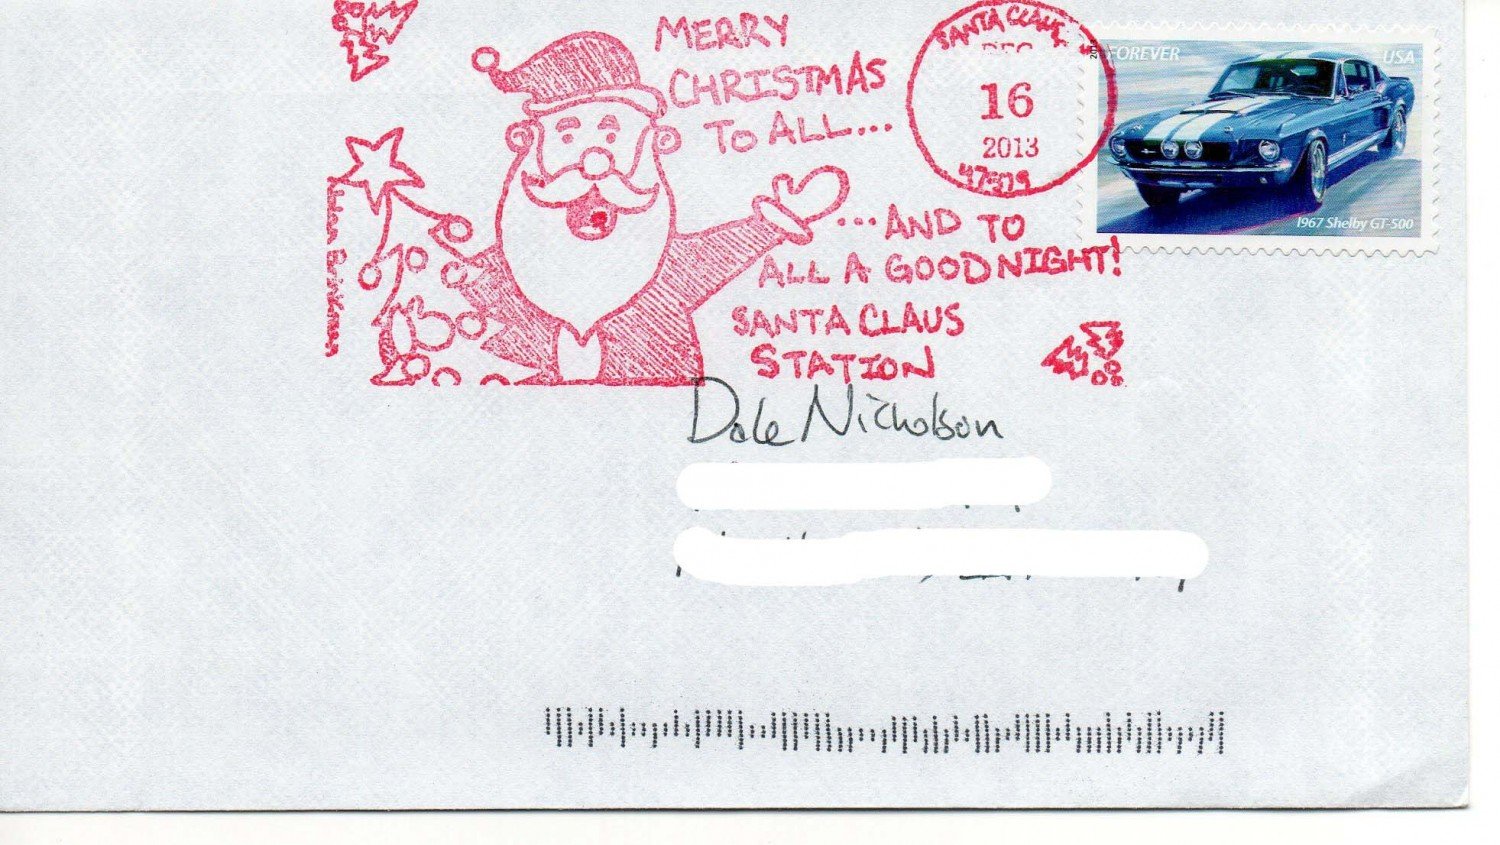 MERRY
CHRISTMAS
TO ALL...
...AND TO
ALL A GOODNIGHT!
SANTA CLAUS
STATION
SANTA CLAUS,
DEC
16
2013
FOREVER
USA
1967 Shelby GT-500
Dale Nicholson